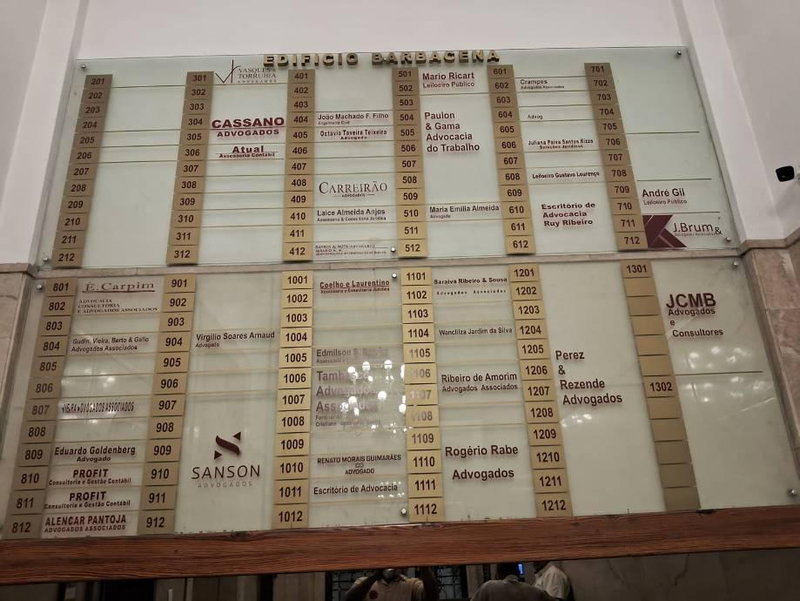 EDIFICIO BARBACENA
201
202
203
204
205
206
207
208
209
210
211
212
301
302
303
304
305
306
307
308
309
310
311
312
VASQUES &
TORRUBIA
ADVOGADOS
CASSANO
ADVOGADOS
Atual
Assessoria Contábil
401
402
403
404
405
406
407
408
409
410
411
412
João Machado F. Filho
Engenharia Civil
Octavio Taveira Teixeira
Advogado
CARREIRÃO
ADVOGADOS
Laice Almeida Anjos
501
502
503
504
505
506
507
508
509
510
511
512
Mario Ricart
Leiloeiro Público
Paulon
& Gama
Advocacia
do Trabalho
Maria Emilia Almeida
Advogada
601
602
603
604
605
606
607
608
609
610
611
612
Crampes
Advogados Associados
Advog
Juliana Paiva Santos Rizzo
Soluções Jurídicas
Leiloeiro Gustavo Lourenço
Escritório de
Advocacia
Ruy Ribeiro
701
702
703
704
705
706
707
708
709
710
711
712
André Gil
Leiloeiro Público
J.Brum &
801
802
803
804
805
806
807
808
809
810
811
812
E. Carpim
ADVOCACIA
CONSULTORIA
E ADVOGADOS ASSOCIADOS
Gudin, Vieira, Berto & Gallo
Advogados Associados
ADVOGADOS ASSOCIADOS
Eduardo Goldenberg
Advogado
PROFIT
Consultoria e Gestão Contábil
PROFIT
Consultoria e Gestão Contábil
ALENCAR PANTOJA
ADVOGADOS ASSOCIADOS
901
902
903
904
905
906
907
908
909
910
911
912
Virgilio Soares Arnaud
Advogado
SANSON
ADVOGADOS
1001
1002
1003
1004
1005
1006
1007
1008
1009
1010
1011
1012
Coelho e Laurentino
Assessoria e Consultoria Jurídica
Edmilson
RENATO MORAIS GUIMARÃES
ADVOGADO
Escritório de Advocacia
1101
1102
1103
1104
1105
1106
1107
1108
1109
1110
1111
1112
Saraiva Ribeiro & Sousa
Advogados Associados
Wancliza Jardim da Silva
Ribeiro de Amorim
Advogados Associados
Rogério Rabe
Advogados
1201
1202
1203
1204
1205
1206
1207
1208
1209
1210
1211
1212
Perez
&
Rezende
Advogados
1301
1302
JCMB
Advogados
e
Consultores